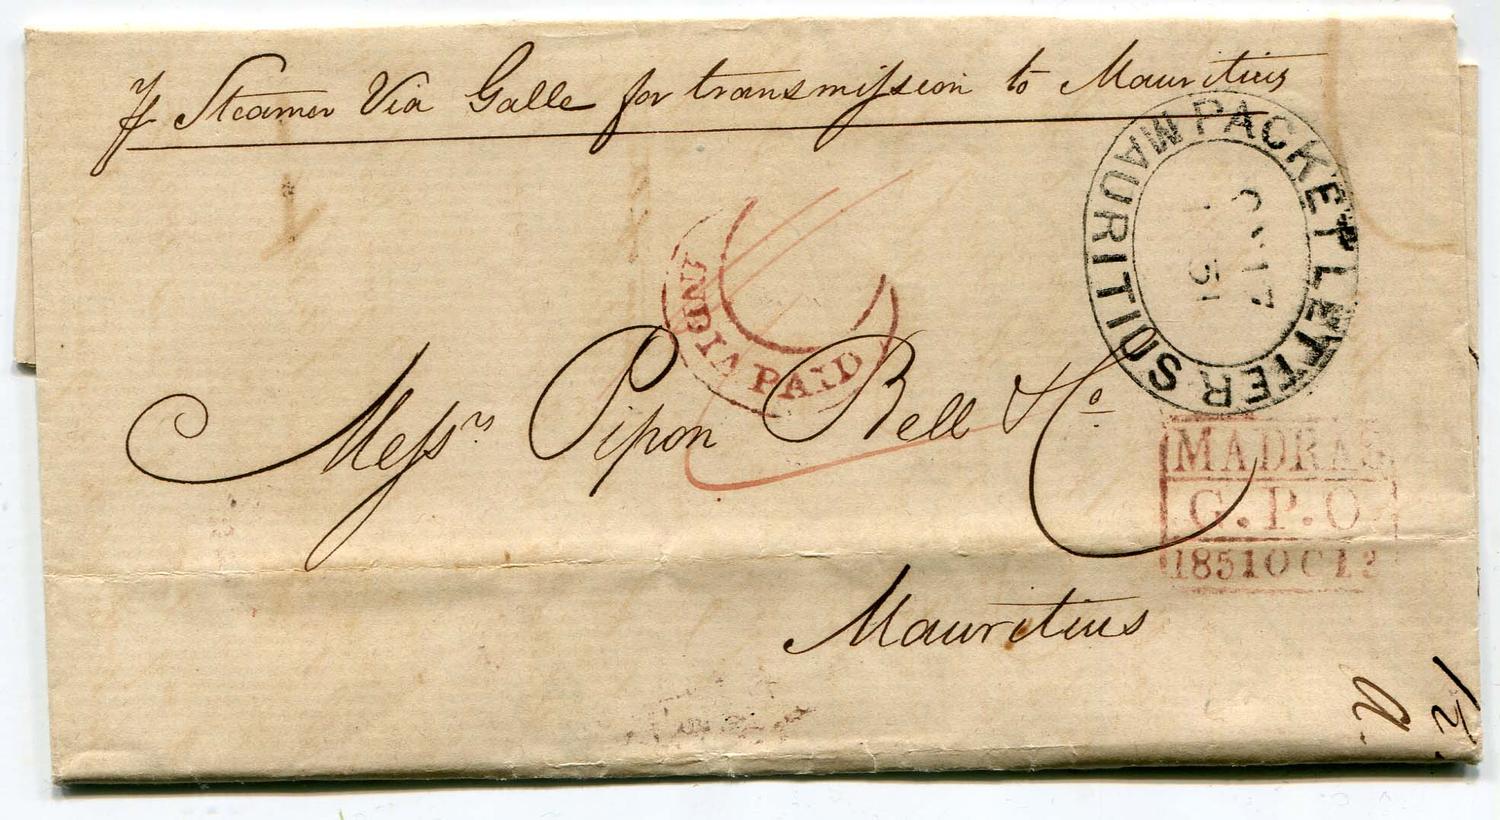 pr Steamer Via Galle for transmission to Mauritius
PACKET LETTER
MAURITIUS
17
51
INDIA PAID
Messrs Pipon Bell & Co
MADRAS
G.P.O
1851 OC 13
Mauritius
a.
1/2.